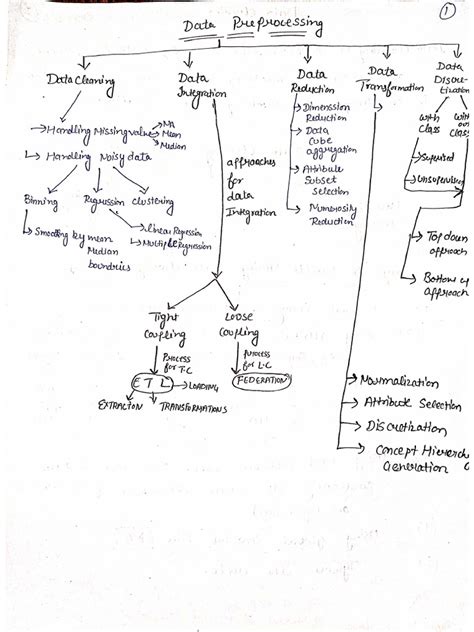 1
Data Preprocessing
Data Cleaning
Data
Integration
Data
Reduction
Data
Transformation
Data
Discre-
tization
Handling Missing value
NA
Mean
Median
Handling Noisy data
Binning
Regression
clustering
Smoothing by mean
Median
boundries
linear Regression
Multiple Regression
approaches
for
data
Integration
Tight
Coupling
Loose
Coupling
Process
for T.C
process
for L.C
ETL
LOADING
EXTRACTION
TRANSFORMATIONS
FEDERATION
Dimenssion
Reduction
Data
Cube
aggregation
Attribute
Subset
Selection
Numbrosity
Reduction
Normalization
Attribute Selection
Discretization
Concept Hierarch
Generation
with
Class
with
out
Class
Supervised
Unsupervised
Top down
approach
Bottom up
Approach